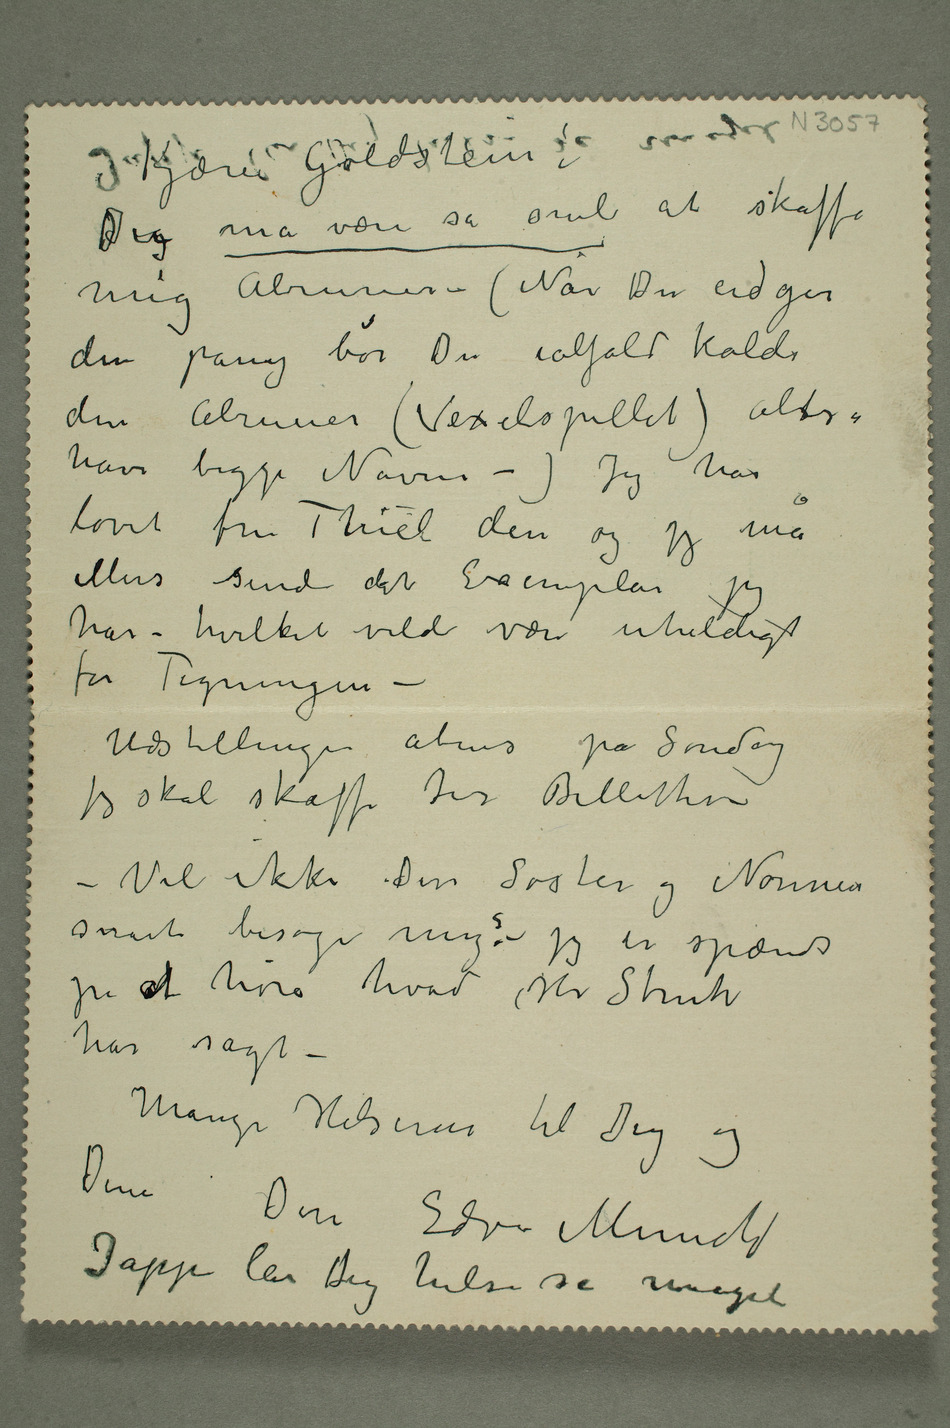 N3057
Kjære Goldstein!
Dig må være så snil at skaffe
mig Alruner – (Når Du udgir
den påny bör Du ialfald kalde
den Alruner (Vexelspillet) altså
have begge Navne –) Jeg har
lovet fru Thiel den og jeg må
ellers sende det Exemplar jeg
har – hvilket vilde være uheldigt
for Tegningen –
Udstillingen åbnes på Söndag
jeg skal skaffe Jer Billetter
– Vil ikke Din Söster og Nörregaard
snart besøge mig? – jeg er spændt
på at höre hvad Hr Struck
har sagt –
Mange Hilsener til Dig og
Dine Din Edvard Munch
Jappe lar Dig hilse så meget